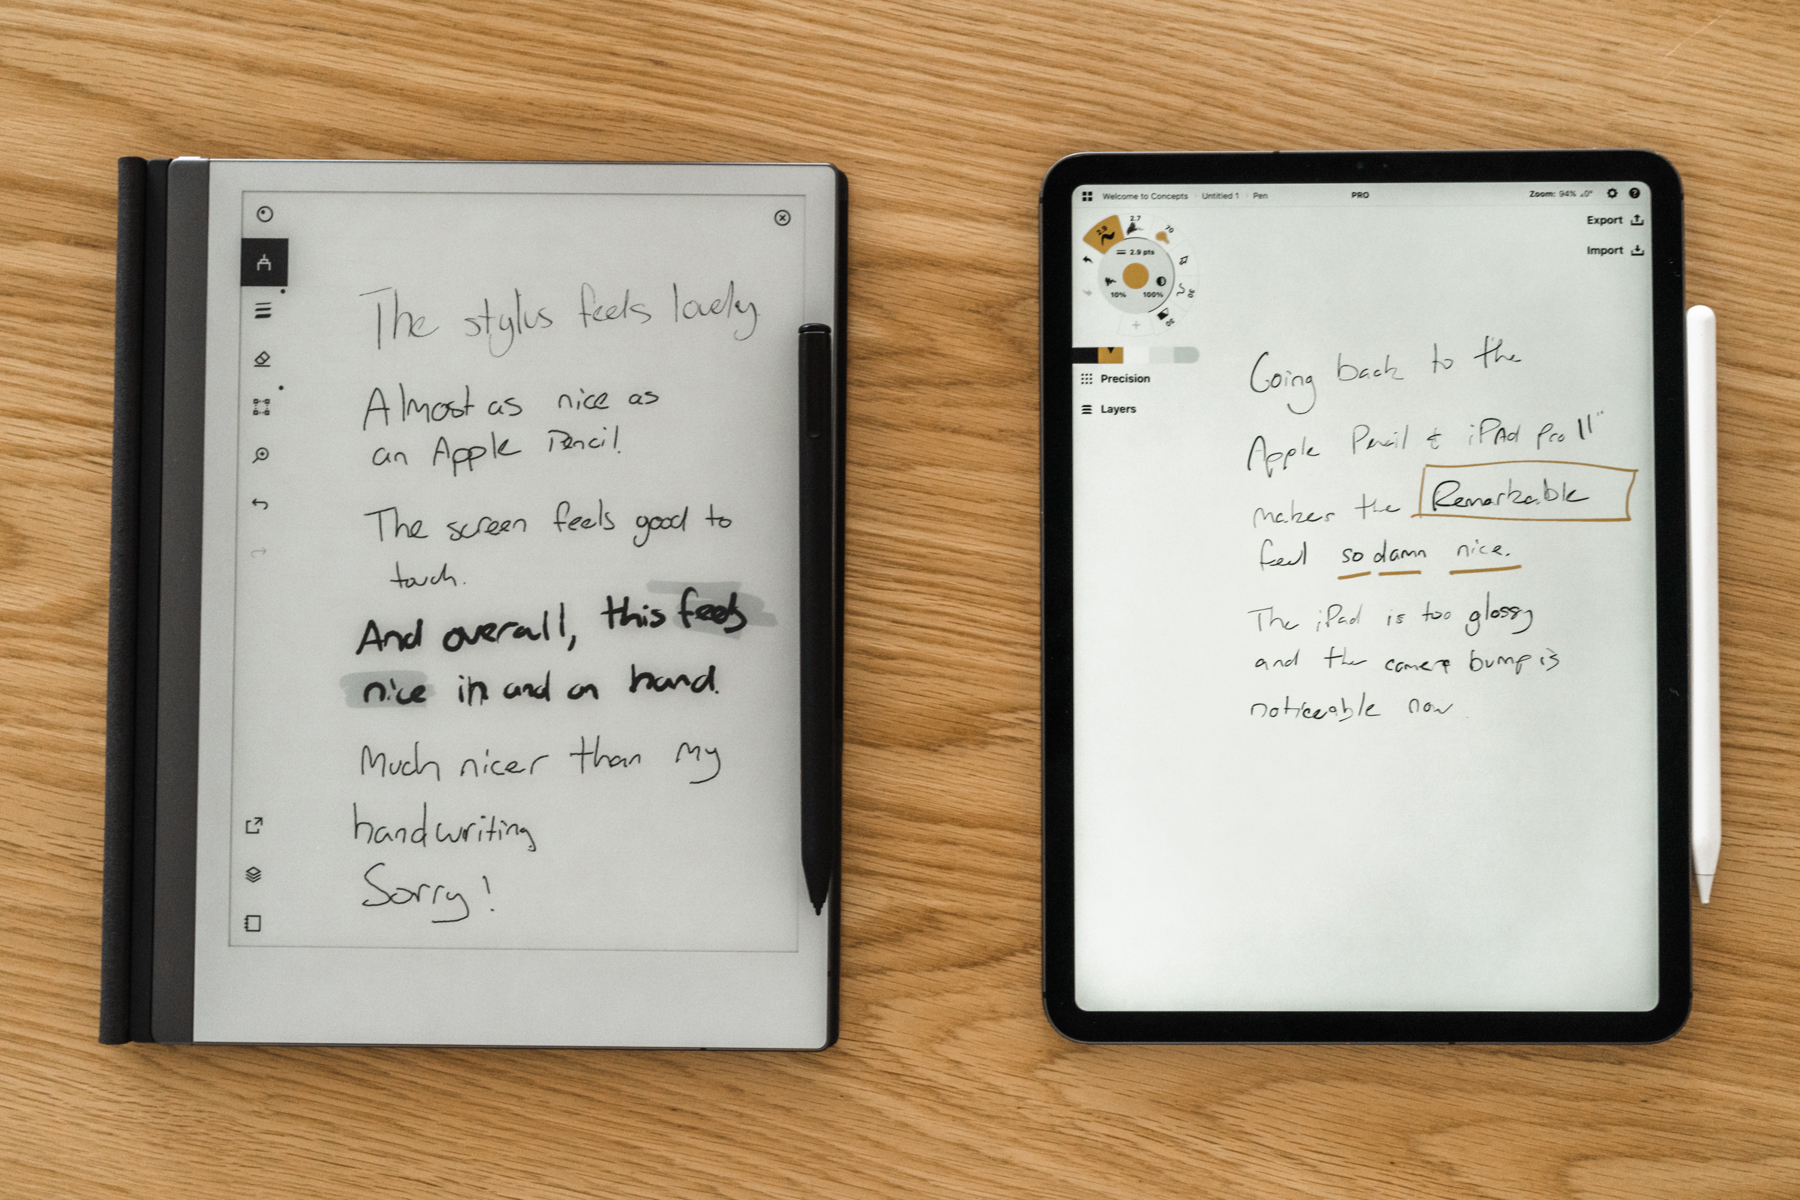 The stylus feels lovely
Almost as nice as
an Apple Pencil.
The screen feels good to
touch.
And overall, this feels
nice in and on hand.
Much nicer than my
handwriting
Sorry!
Welcome to Concepts Untitled 1 Pen
PRO
Zoom: 94% 0°
Export
Import
2.9
2.7
70
2.9 pts
10% 100%
Precision
Layers
Going back to the
Apple Pencil & iPAd Pro 11"
makes the Remarkable
feel so damn nice.
The iPad is too glossy
and the camera bump is
noticeable now